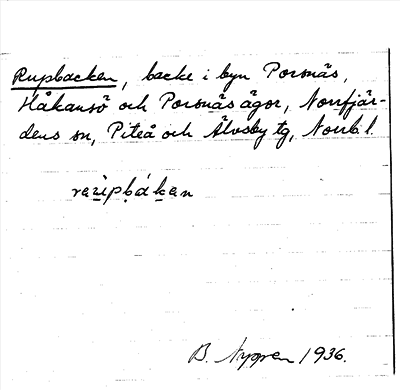 Rupbacken, backe i byn Porsnäs,
Håkansö och Porsnäs ägor, Norrfjär-
dens sn, Piteå och Älvsby tg, Norrb. l.
B. Nygren 1936.